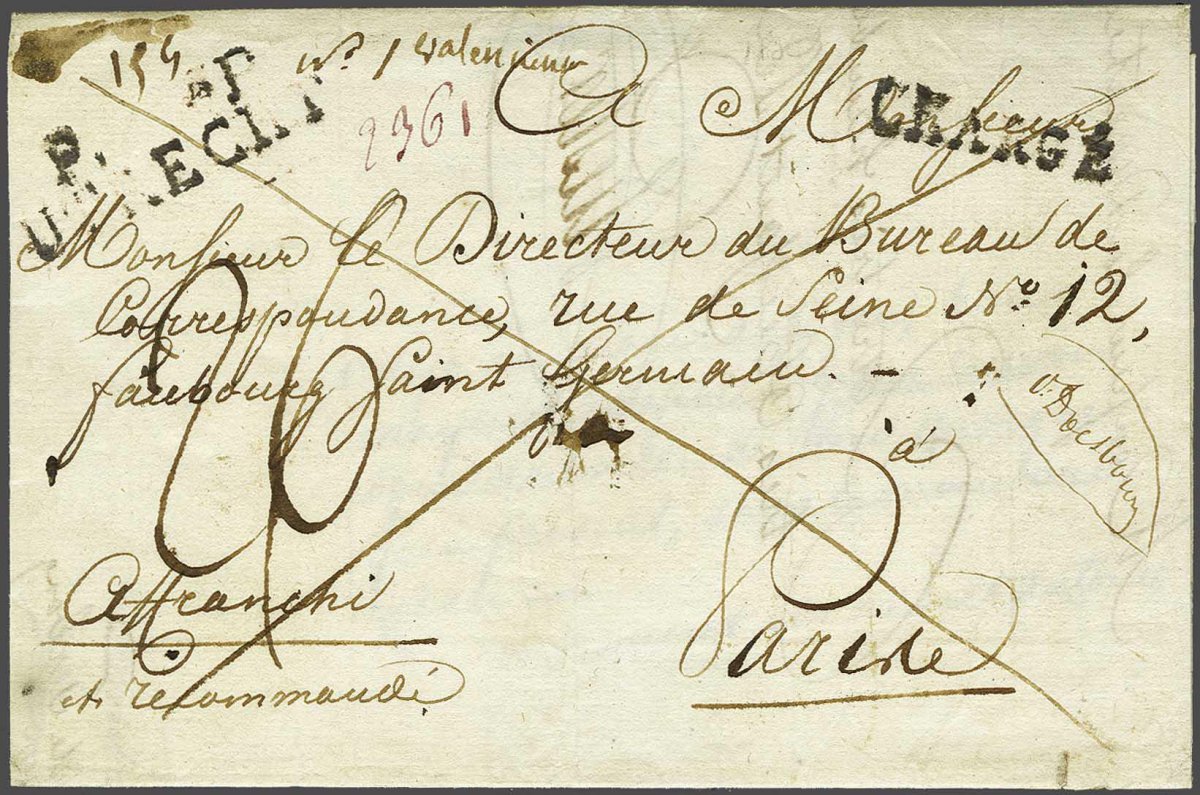 154 No. 1 Valencienn
P. P.
UTRECHT
2361
CHARGÉ
A Monsieur
Monsieur le Directeur du Bureau de
Correspondance, rue de Seine No. 12,
faubourg Saint Germain. -
à
v. Doesbourg
Parise
Affranchi
et recommandé